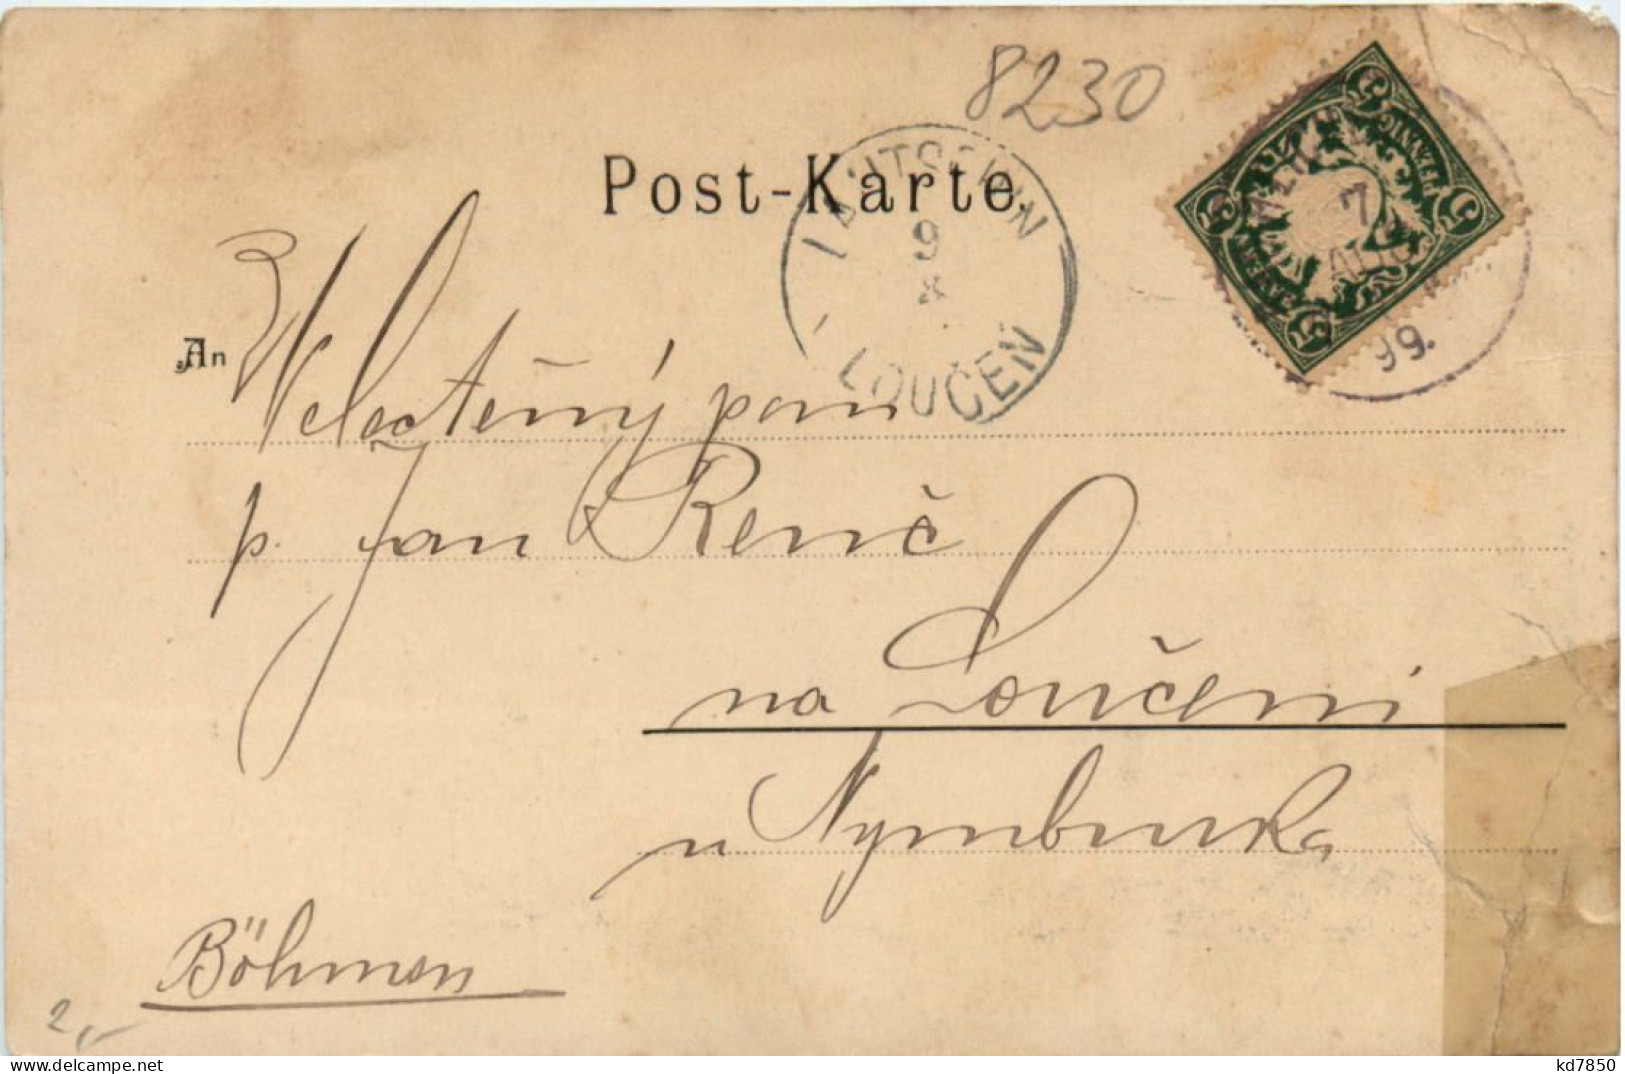 8230
Post-Karte.
LAUTSCHIN
9
8
LOUČEŇ
5 PFENNIG
BAYERN
7
AUG
99.
An
Velectěný pan
p. Jan Renč
na Loučeni
u Nymburka
Böhmen
2,-
kd7850